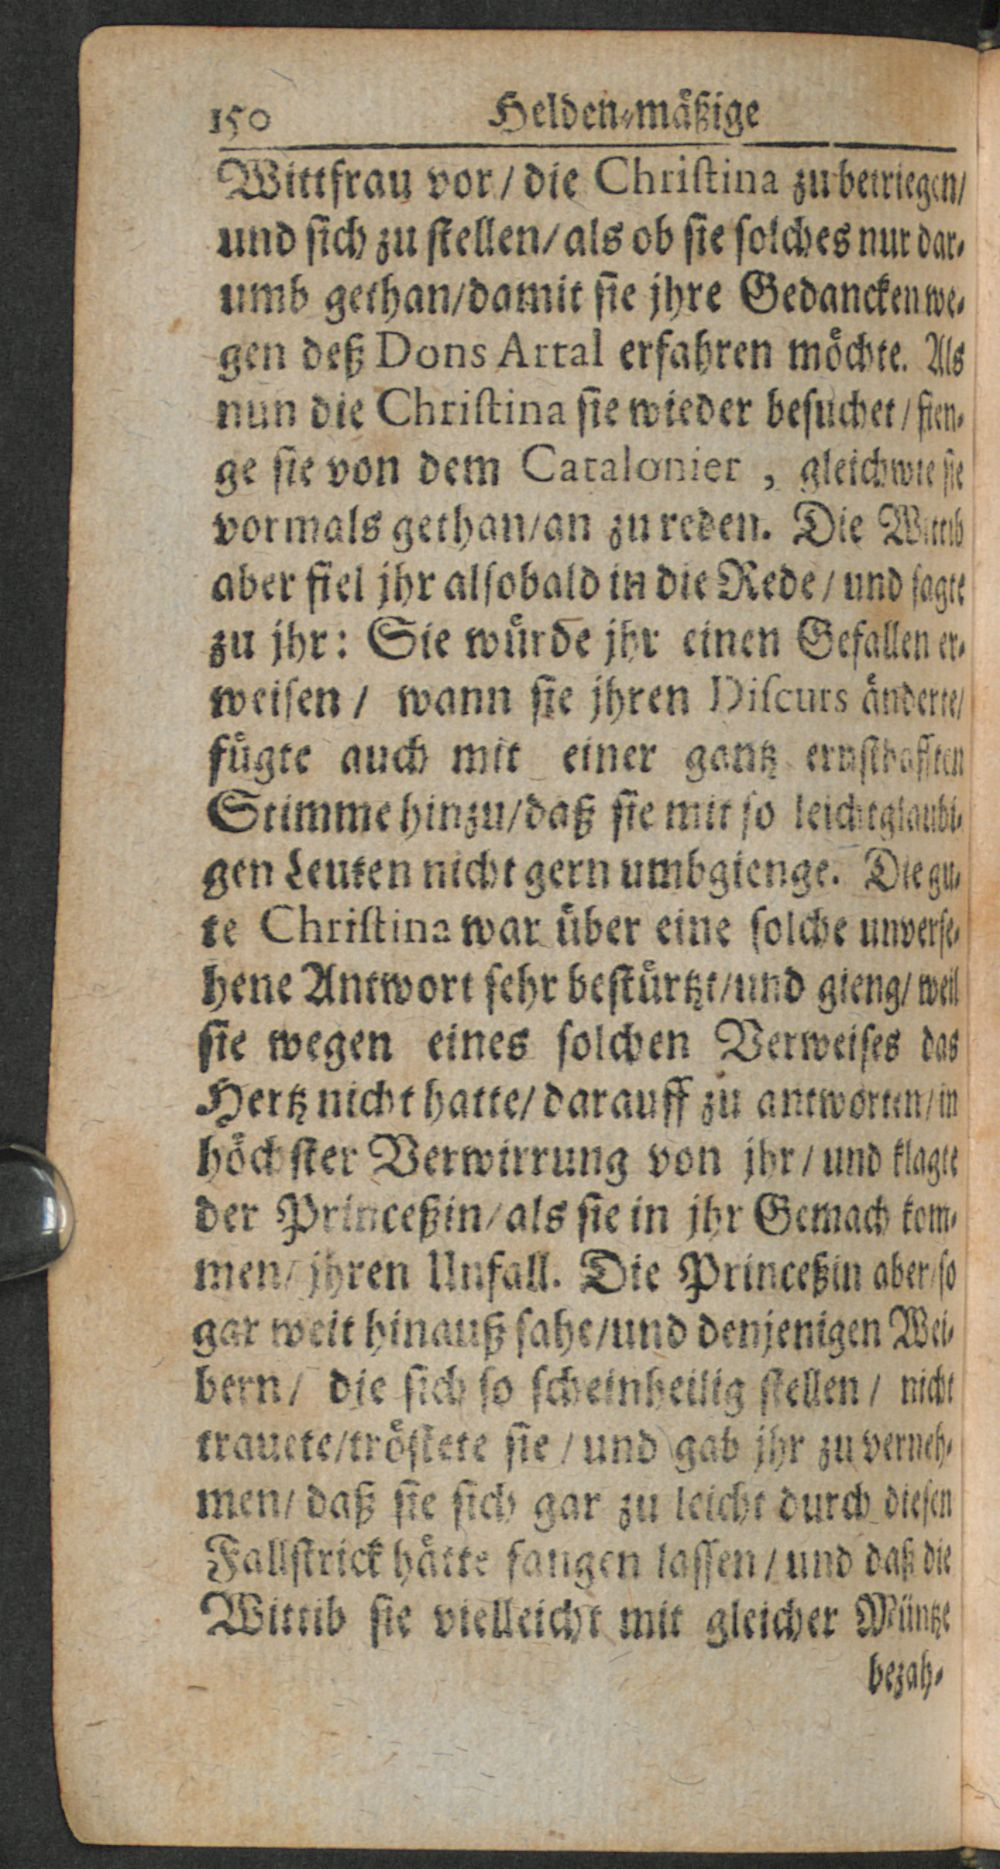 150 Helden-mäßige
Wittfrau vor / die Christina zu betriegen/
und sich zu stellen/ als ob sie solches nur dar-
umb gethan/damit sie jhre Gedancken we-
gen deß Dons Artal erfahren möchte. Als
nun die Christina sie wieder besuchet / fien-
ge sie von dem Catalonier , gleichwie sie
vormals gethan/an zu reden. Die Wittib
aber fiel jhr alsobald in die Rede / und sagte
zu jhr: Sie würde jhr einen Gefallen er-
weisen / wann sie jhren Discurs änderte/
fügte auch mit einer gantz ernsthafften
Stimme hinzu/daß sie mit so leichtglaubi-
gen Leuten nicht gern umbgienge. Die gu-
te Christina war über eine solche unverse-
hene Antwort sehr bestürtzt/und gieng/ weil
sie wegen eines solchen Verweises das
Hertz nicht hatte/ darauff zu antworten/in
höchster Verwirrung von jhr / und klagte
der Princeßin/ als sie in jhr Gemach kom-
men/ jhren Unfall. Die Princeßin aber/so
gar weit hinauß sahe/und denjenigen Wei-
bern/ die sich so scheinheilig stellen / nicht
trauete/tröstete sie / und gab jhr zu verneh-
men/ daß sie sich gar zu leicht durch diesen
Fallstrick hätte fangen lassen / und daß die
Wittib sie vielleicht mit gleicher Müntze
bezah-